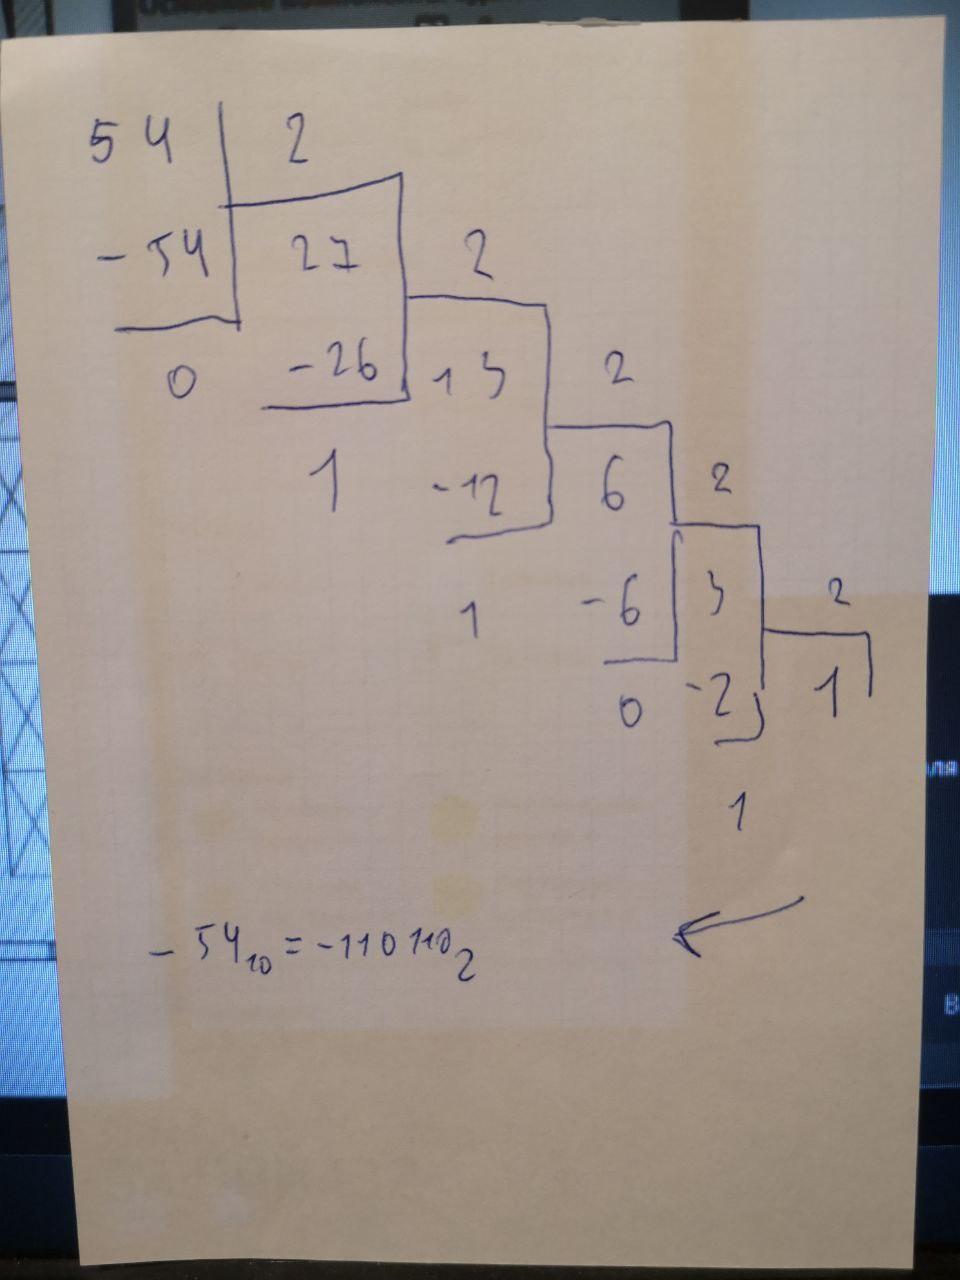 54 2
-54 27 2
0 -26 13 2
1 -12 6 2
1 -6 3 2
0 -2 1
1
-54₁₀ = -110110₂
В